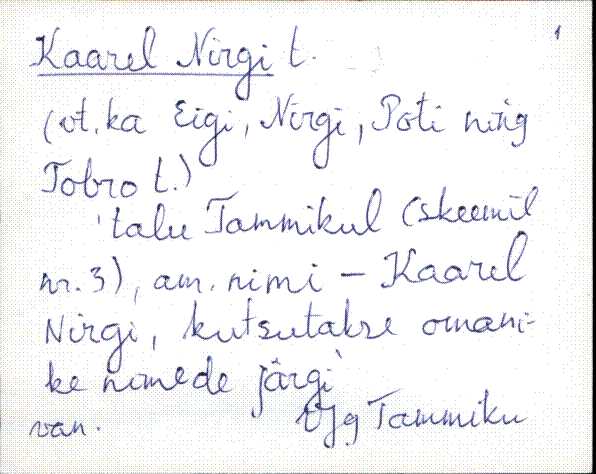 1
Kaarel Nirgi t.
(vt. ka Eigi, Nirgi, Poti ning
Tobro t.)
'talu Tammikul (skeemil
nr. 3), am. nimi – Kaarel
Nirgi, kutsutakse omani-
ke nimede järgi'
van. Vjg Tammiku